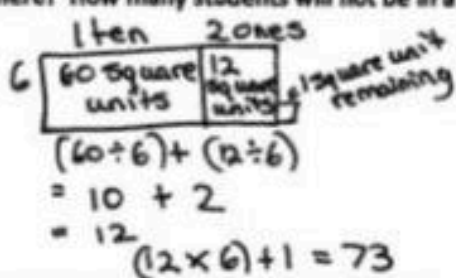 here? How many students will not be in a
1 ten 2 ones
6 60 square units 12 square units 1 square unit remaining
(60÷6)+(12÷6)
= 10 + 2
= 12
(12 × 6)+1 = 73